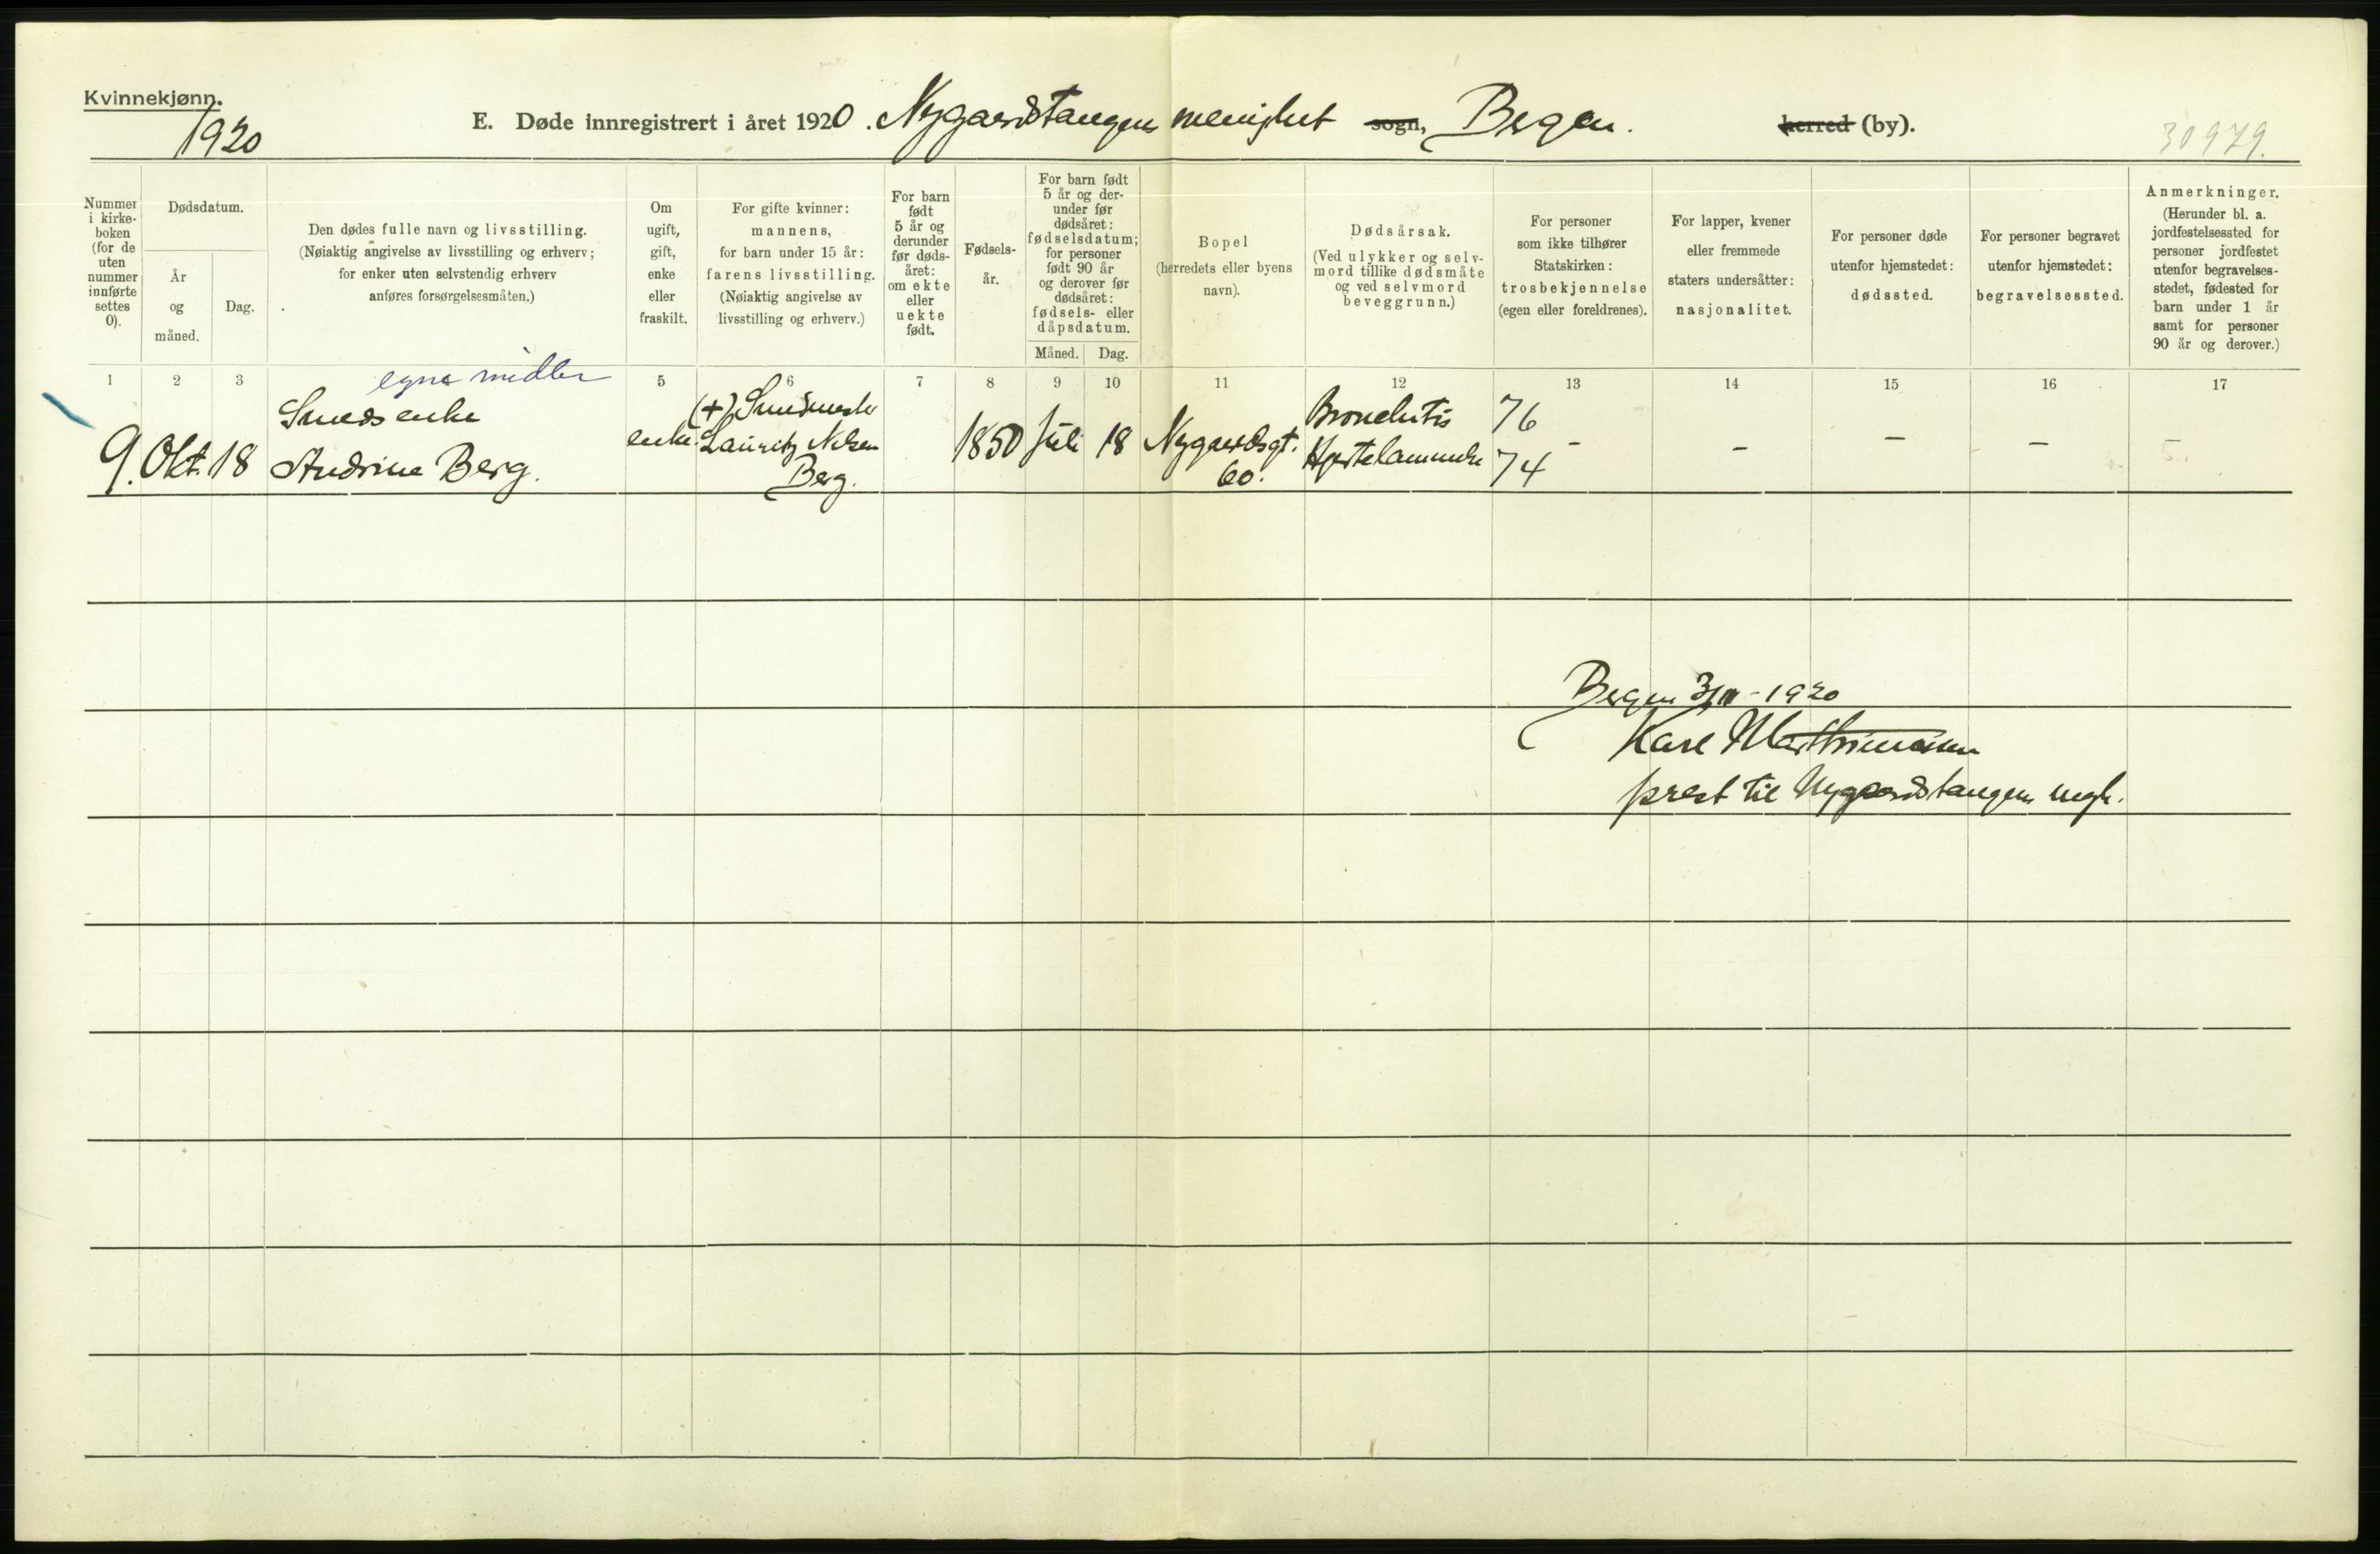 Kvinnekjønn.
1920
E. Døde innregistrert i året 1920. Nygaardstangens menighet sogn, Bergen. herred (by).
30979.
Nummer i kirke-boken (for de uten nummer innførte settes 0).
Dødsdatum.
År og måned.
Dag.
Den dødes fulle navn og livsstilling.
(Nøiaktig angivelse av livsstilling og erhverv;
for enker uten selvstendig erhverv
anføres forsørgelsesmåten.)
Om ugift, gift, enke eller fraskilt.
For gifte kvinner:
mannens,
for barn under 15 år:
farens livsstilling.
(Nøiaktig angivelse av
livsstilling og erhverv.)
For barn født 5 år og derunder før døds-året: om ekte eller uekte født.
Fødsels-år.
For barn født 5 år og der-under før dødsåret: fødselsdatum; for personer født 90 år og derover før dødsåret: fødsels- eller dåpsdatum.
Måned.
Dag.
Bopel
(herredets eller byens
navn).
Dødsårsak.
(Ved ulykker og selv-
mord tillike dødsmåte
og ved selvmord
beveggrunn.)
For personer
som ikke tilhører
Statskirken:
trosbekjennelse
(egen eller foreldrenes).
For lapper, kvener
eller fremmede
staters undersåtter:
nasjonalitet.
For personer døde
utenfor hjemstedet:
dødssted.
For personer begravet
utenfor hjemstedet:
begravelsessted.
Anmerkninger.
(Herunder bl. a.
jordfestelsessted for
personer jordfestet
utenfor begravelses-
stedet, fødested for
barn under 1 år
samt for personer
90 år og derover.)
1 2 3 5 6 7 8 9 10 11 12 13 14 15 16 17
egne midler
Smedsenke
9. Okt. 18 Andrine Berg.
enke.
(+) Smedmester
Lauritz Nilsen
Berg.
1850 Juli 18
Nygaardsgt.
60.
Bronchitis 76
Hjertelammelse 74
- - - -
Bergen 3/11 - 1920
Karl Marthinussen
prest til Nygaardstangens mgh.